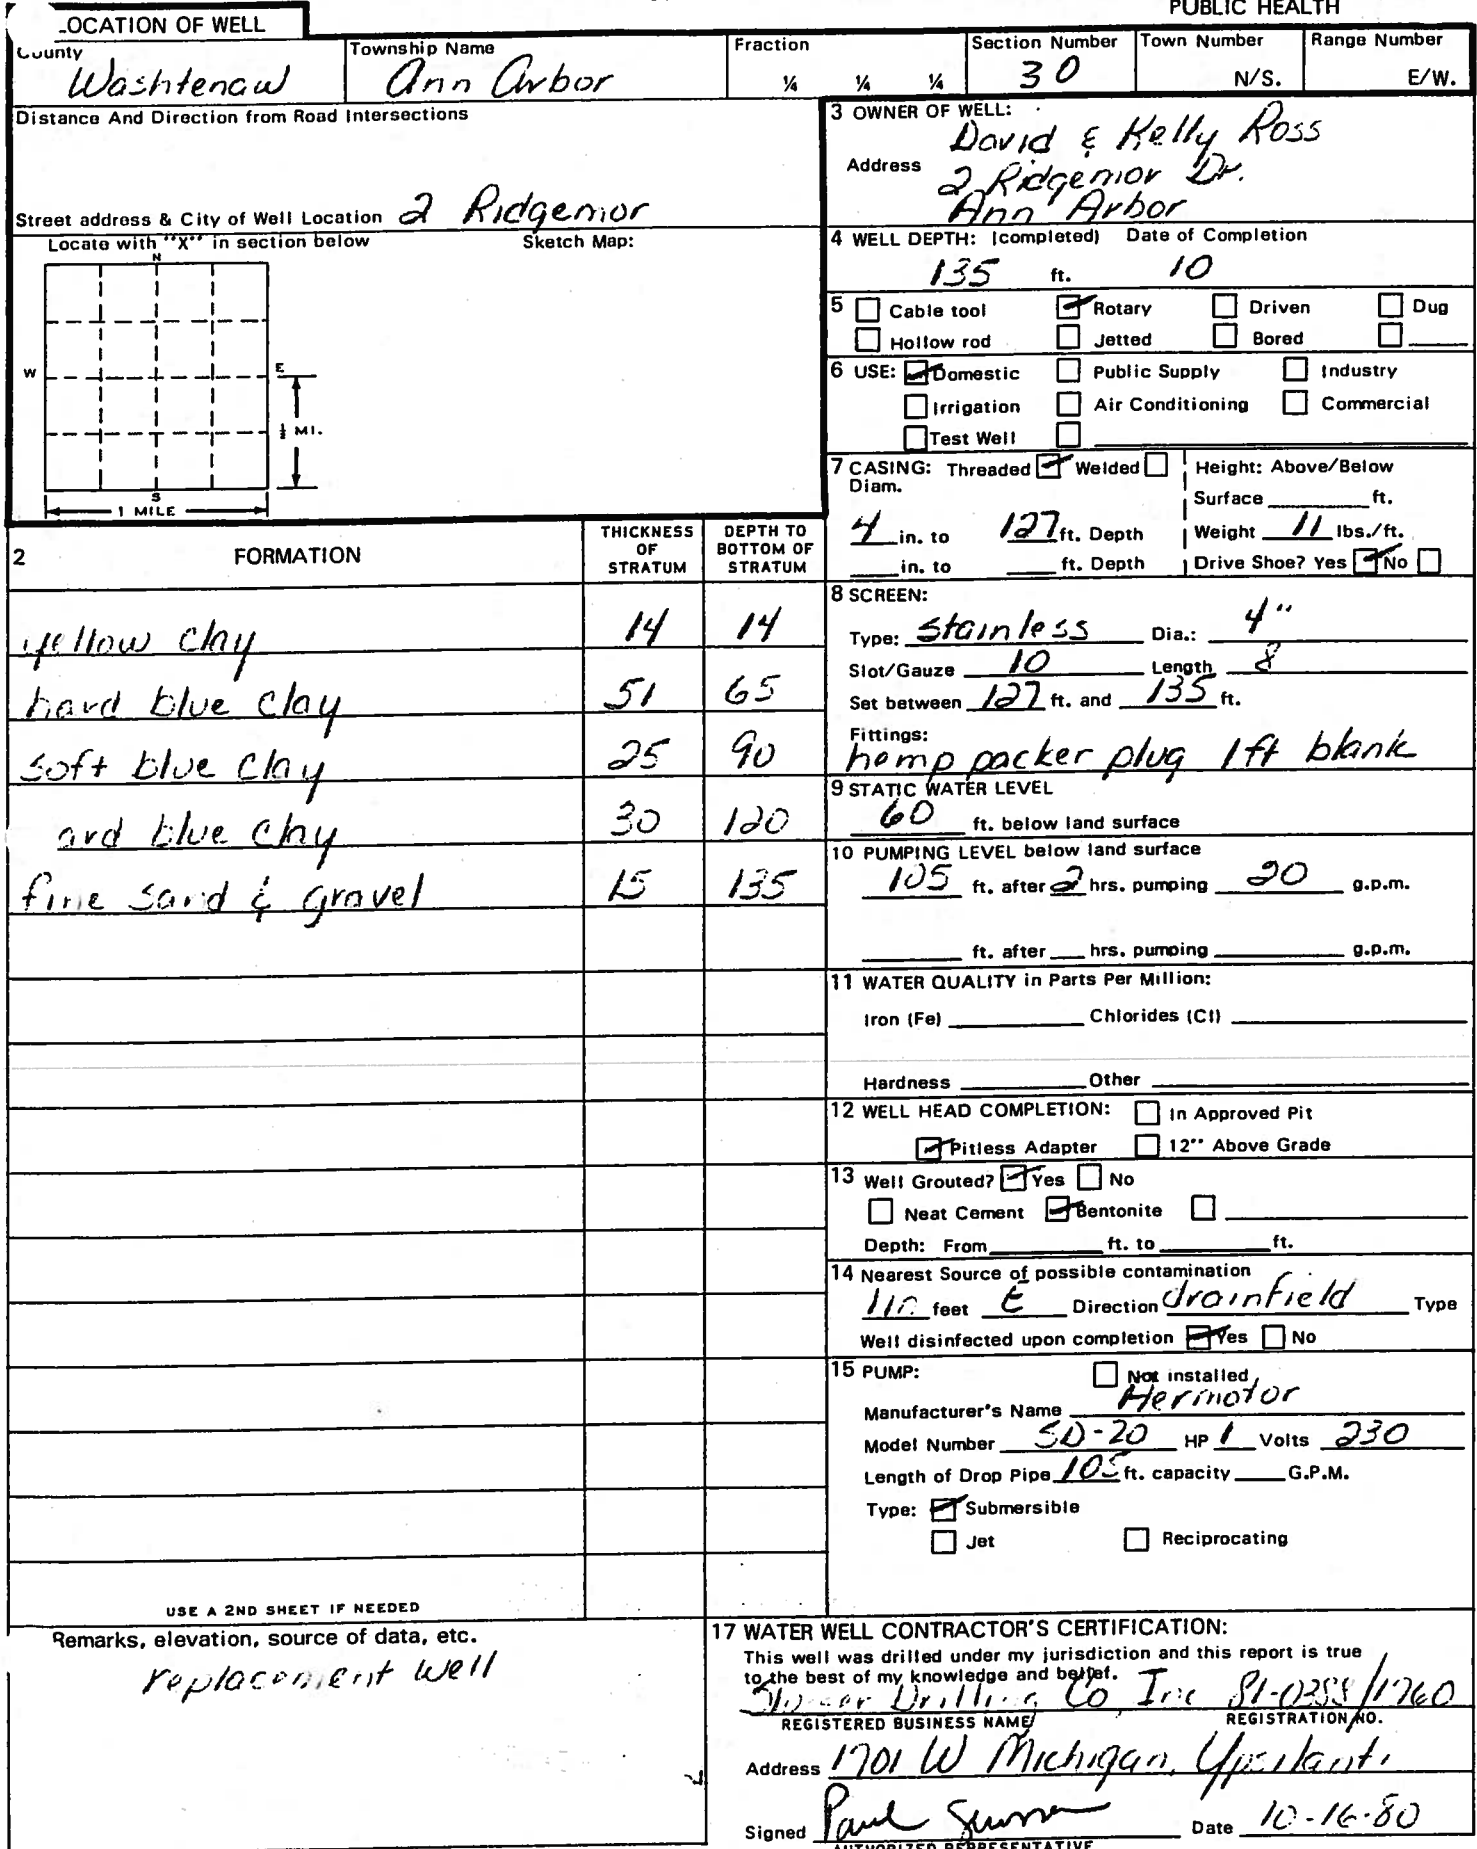 PUBLIC HEALTH
LOCATION OF WELL
County
Washtenaw
Township Name
Ann Arbor
Fraction
¼ ¼ ¼
Section Number
30
Town Number
N/S.
Range Number
E/W.
Distance And Direction from Road Intersections
Street address & City of Well Location 2 Ridgemor
Locate with "X" in section below
Sketch Map:
N
W
E
½ MI.
S
1 MILE
3 OWNER OF WELL:
David & Kelly Ross
Address 2 Ridgemor Dr.
Ann Arbor
4 WELL DEPTH: (completed) Date of Completion
135 ft. 10
5 Cable tool Rotary Driven Dug
Hollow rod Jetted Bored
6 USE: Domestic Public Supply Industry
Irrigation Air Conditioning Commercial
Test Well
7 CASING: Threaded Welded
Diam.
4 in. to 127 ft. Depth
in. to ft. Depth
Height: Above/Below
Surface ft.
Weight 11 lbs./ft.
Drive Shoe? Yes No
2 FORMATION
THICKNESS OF STRATUM
DEPTH TO BOTTOM OF STRATUM
yellow clay 14 14
hard blue clay 51 65
soft blue clay 25 90
ard blue clay 30 120
fine sand & gravel 15 135
8 SCREEN:
Type: stainless Dia.: 4"
Slot/Gauze 10 Length 8
Set between 127 ft. and 135 ft.
Fittings:
hemp packer plug 1ft blank
9 STATIC WATER LEVEL
60 ft. below land surface
10 PUMPING LEVEL below land surface
105 ft. after 2 hrs. pumping 20 g.p.m.
ft. after hrs. pumping g.p.m.
11 WATER QUALITY in Parts Per Million:
Iron (Fe) Chlorides (Cl)
Hardness Other
12 WELL HEAD COMPLETION: In Approved Pit
Pitless Adapter 12" Above Grade
13 Well Grouted? Yes No
Neat Cement Bentonite
Depth: From ft. to ft.
14 Nearest Source of possible contamination
110 feet E Direction drainfield Type
Well disinfected upon completion Yes No
15 PUMP: Not installed
Manufacturer's Name Hermotor
Model Number SD-20 HP 1 Volts 230
Length of Drop Pipe 105 ft. capacity G.P.M.
Type: Submersible
Jet Reciprocating
USE A 2ND SHEET IF NEEDED
Remarks, elevation, source of data, etc.
replacement well
17 WATER WELL CONTRACTOR'S CERTIFICATION:
This well was drilled under my jurisdiction and this report is true
to the best of my knowledge and belief.
Drilling Co, Inc 81-0388/1760
REGISTERED BUSINESS NAME REGISTRATION NO.
Address 1701 W Michigan, Ypsilanti
Signed Paul Date 10-16-80
AUTHORIZED REPRESENTATIVE